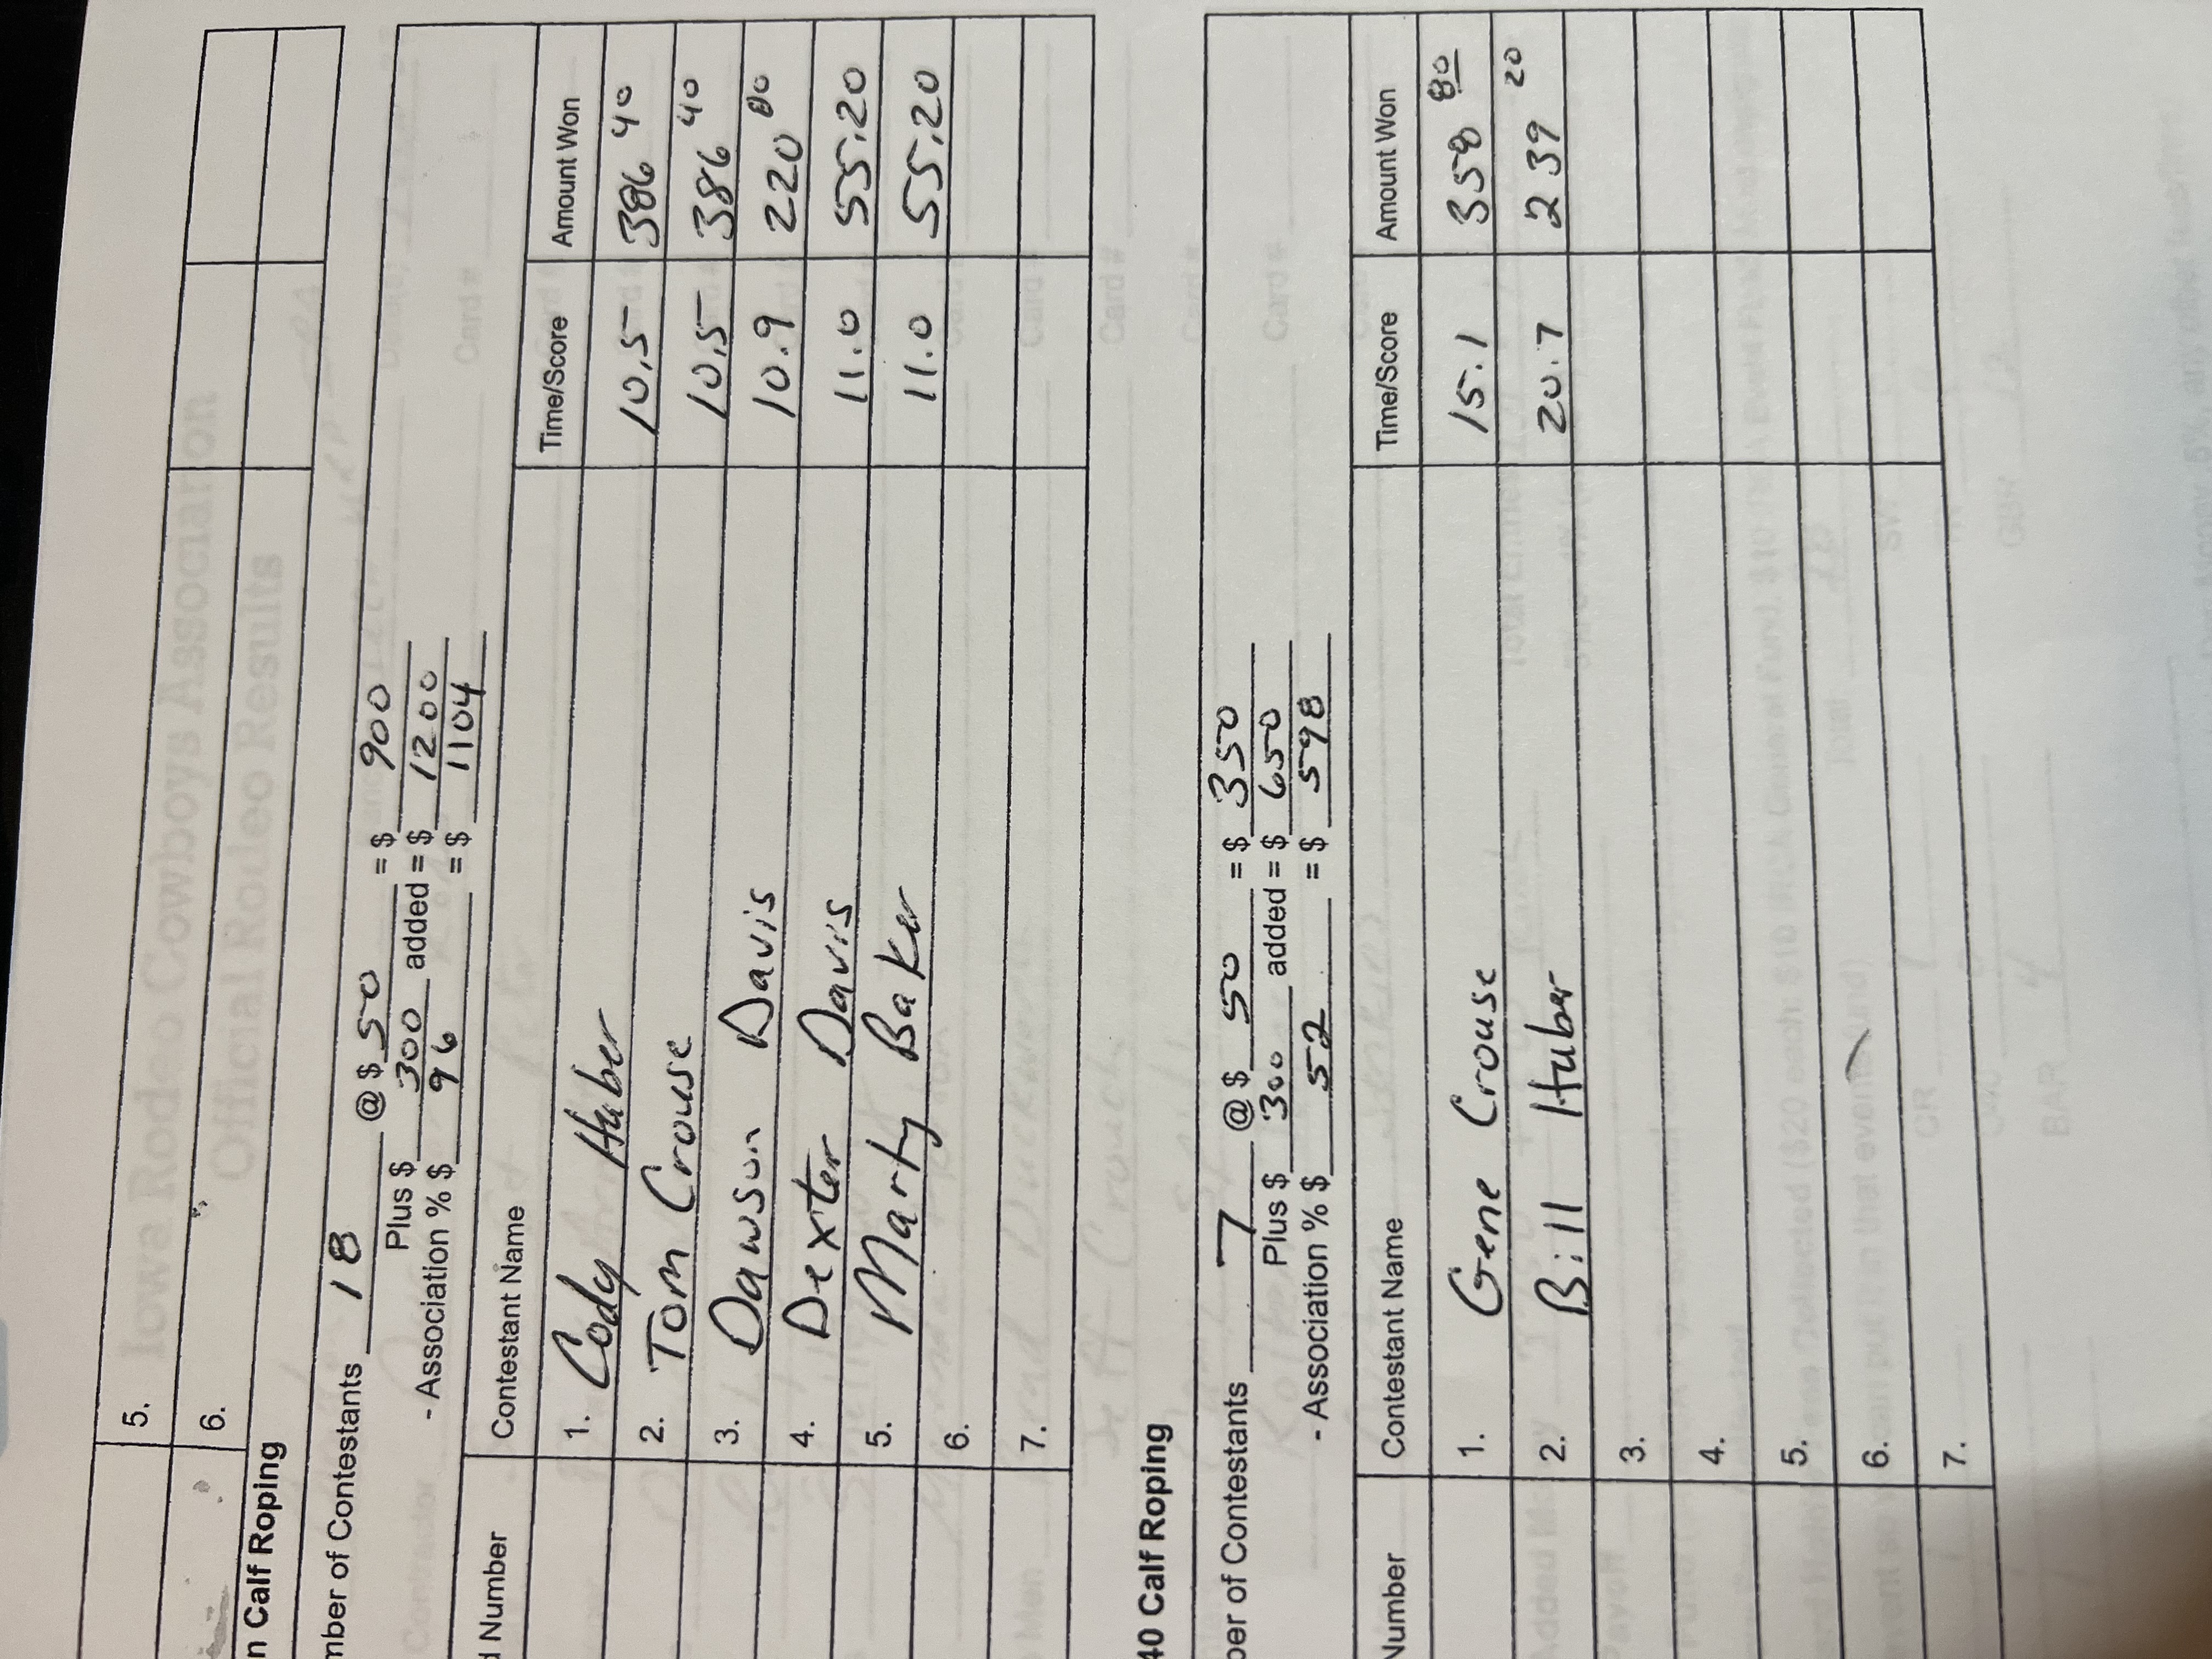 5.
6.
n Calf Roping
mber of Contestants 18 @ $ 50 = $ 900
Plus $ 300 added = $ 1200
- Association % $ 96 = $ 1104
d Number Contestant Name Time/Score Amount Won
1. Cody Huber 10.5 386 40
2. Tom Crouse 10.5 386 40
3. Dawson Davis 10.9 220 80
4. Dexter Davis 11.0 55.20
5. Marty Baker 11.0 55.20
6.
7.
40 Calf Roping
ber of Contestants 7 @ $ 50 = $ 350
Plus $ 300 added = $ 650
- Association % $ 52 = $ 598
Number Contestant Name Time/Score Amount Won
1. Gene Crouse 15.1 358 80
2. Bill Huber 20.7 239 20
3.
4.
5.
6.
7.
Iowa Rodeo Cowboys Association
Official Rodeo Results